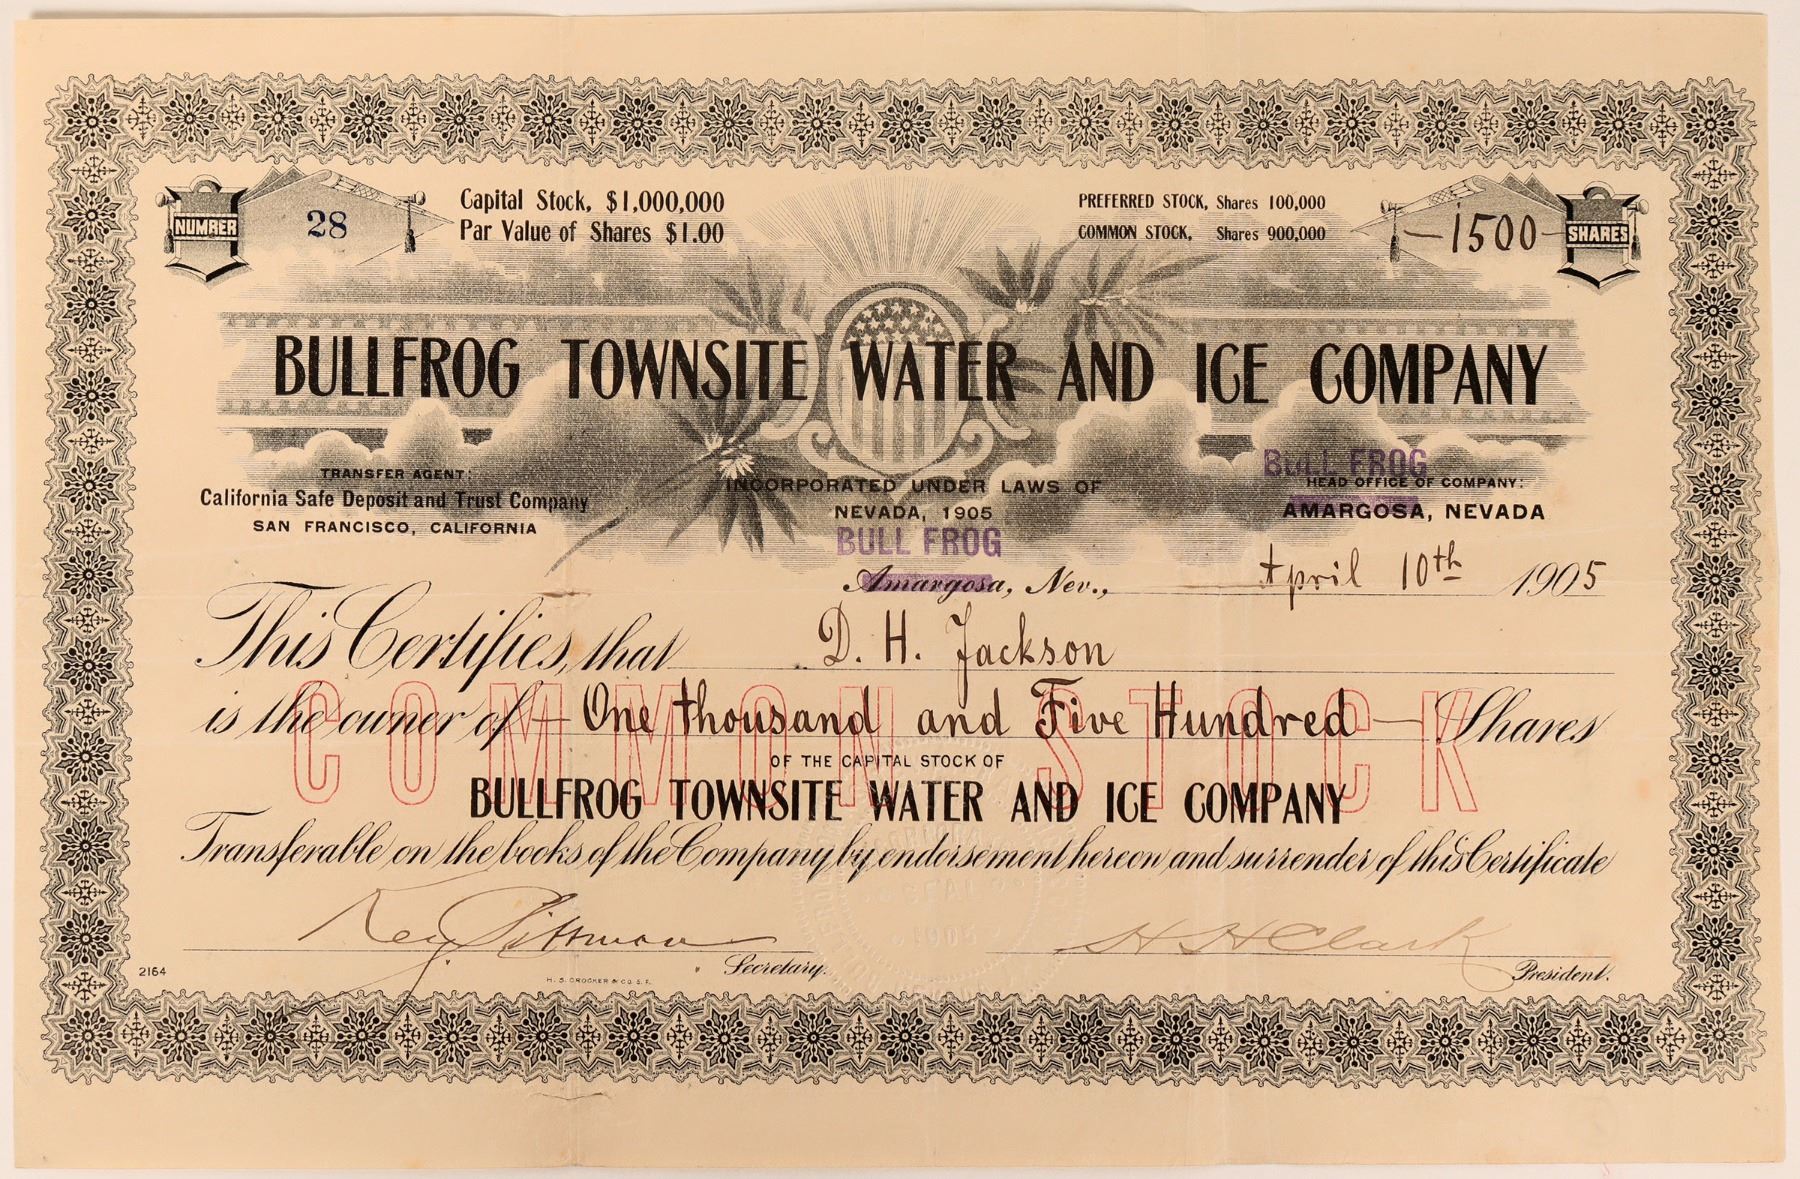 NUMBER
28
Capital Stock, $1,000,000
Par Value of Shares $1.00
PREFERRED STOCK, Shares 100,000
COMMON STOCK, Shares 900,000
—1500—
SHARES
BULLFROG TOWNSITE WATER AND ICE COMPANY
TRANSFER AGENT:
California Safe Deposit and Trust Company
SAN FRANCISCO, CALIFORNIA
INCORPORATED UNDER LAWS OF
NEVADA, 1905
BULL FROG
HEAD OFFICE OF COMPANY:
AMARGOSA, NEVADA
BULL FROG
Amargosa, Nev., April 10th 1905
This Certifies, that D. H. Jackson
is the owner of — One thousand and Five Hundred — Shares
COMMON STOCK
OF THE CAPITAL STOCK OF
BULLFROG TOWNSITE WATER AND ICE COMPANY
Transferable on the books of the Company by endorsement hereon and surrender of this Certificate
Key Pittman
Secretary.
H H Clark
President.
2164
H. S. CROCKER & CO. S. F.
SEAL